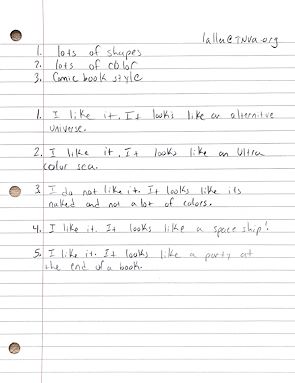 lalla@TNVA.org
1. lots of shapes
2. lots of color
3. Comic book style
1. I like it. It looks like an alternitve
universe.
2. I like it. It looks like an Ultra
color sea.
3. I do not like it. It looks like its
naked and not a lot of colors.
4. I like it. It looks like a space ship!
5. I like it. It looks like a party at
the end of a book.